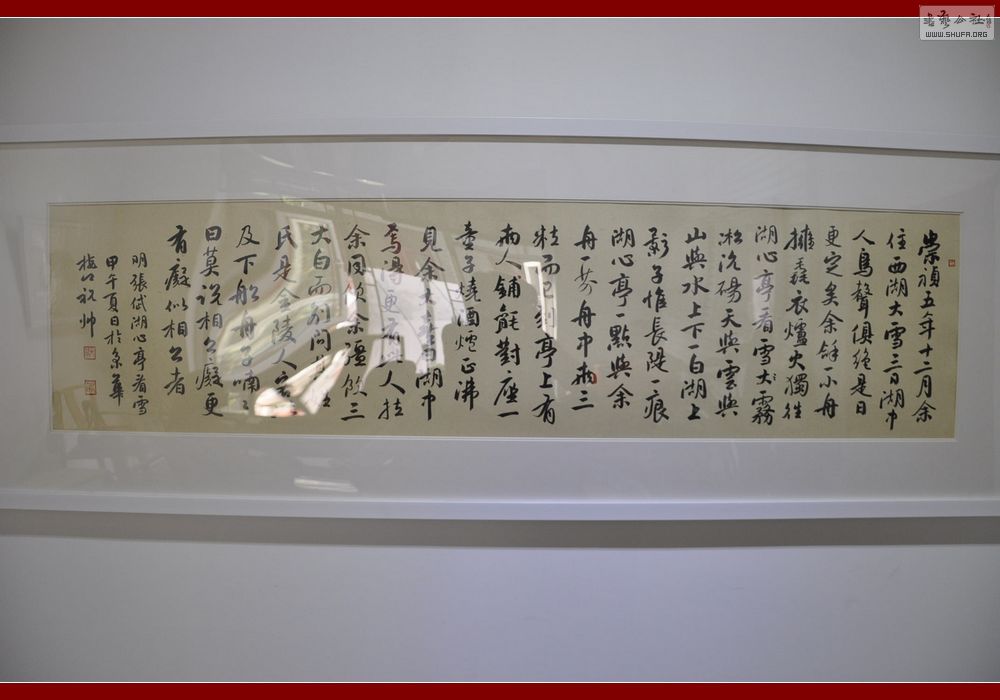 崇禎五年十二月余
住西湖大雪三日湖中
人鳥聲俱絶是日
更定矣余拏一小舟
擁毳衣爐火獨往
湖心亭看雪大霧
凇沆碭天與雲與
山與水上下一白湖上
影子惟長隄一痕
湖心亭一點與余
舟一芥舟中兩三
粒而已到亭上有
兩人鋪氈對座一
童子燒酒爐正沸
見余大湖中
焉得更有此人拉
余同飲余彊飲三
大白而別問其姓
氏是金陵人客
及下船舟子喃々
曰莫說相公癡更
有癡似相公者
明張岱湖心亭看雪
甲午夏日於京華
祝帥
書藝公社
WWW.SHUFA.ORG